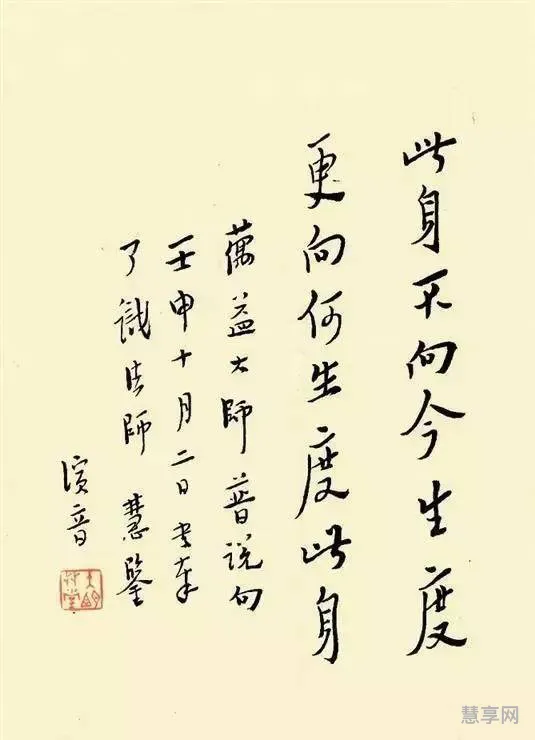 此身不向今生度
更向何生度此身
蕅益大師普說句
壬申十月二日書奉
了識法師 慧鑒
演音
慧享网